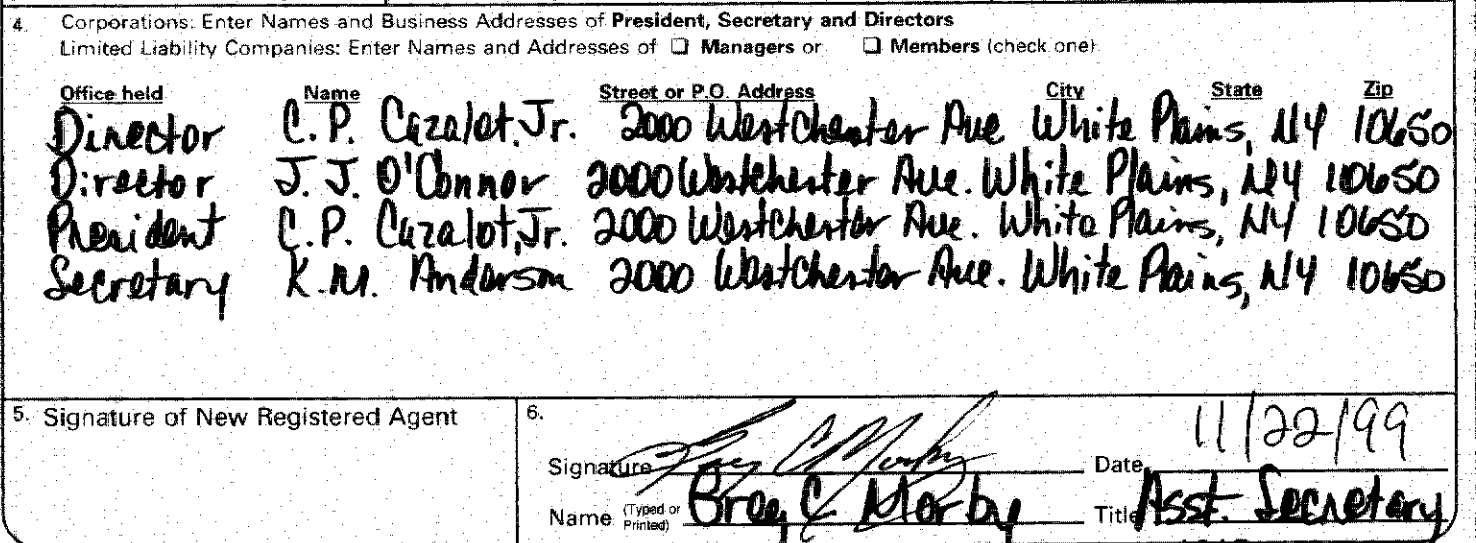 4. Corporations: Enter Names and Business Addresses of President, Secretary and Directors
Limited Liability Companies: Enter Names and Addresses of ☐ Managers or ☐ Members (check one)
Office held Name Street or P.O. Address City State Zip
Director C. P. Cazalot, Jr. 2000 Westchester Ave White Plains, NY 10650
Director J. J. O'Connor 2000 Westchester Ave. White Plains, NY 10650
President C. P. Cazalot, Jr. 2000 Westchester Ave. White Plains, NY 10650
Secretary K. M. Anderson 2000 Westchester Ave. White Plains, NY 10650
5. Signature of New Registered Agent
6.
Signature Date 11/22/99
Name (Typed or Printed) C Morby Title Asst. Secretary